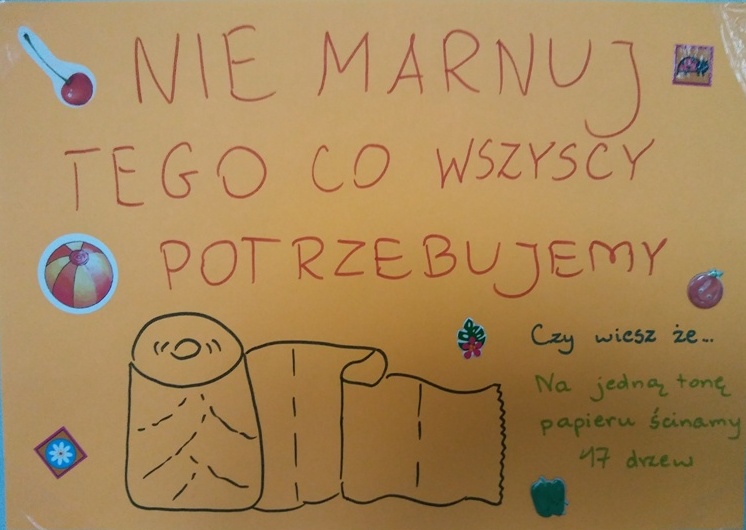 NIE MARNUJ
TEGO CO WSZYSCY
POTRZEBUJEMY
Czy wiesz że...
Na jedną tonę
papieru ścinamy
17 drzew